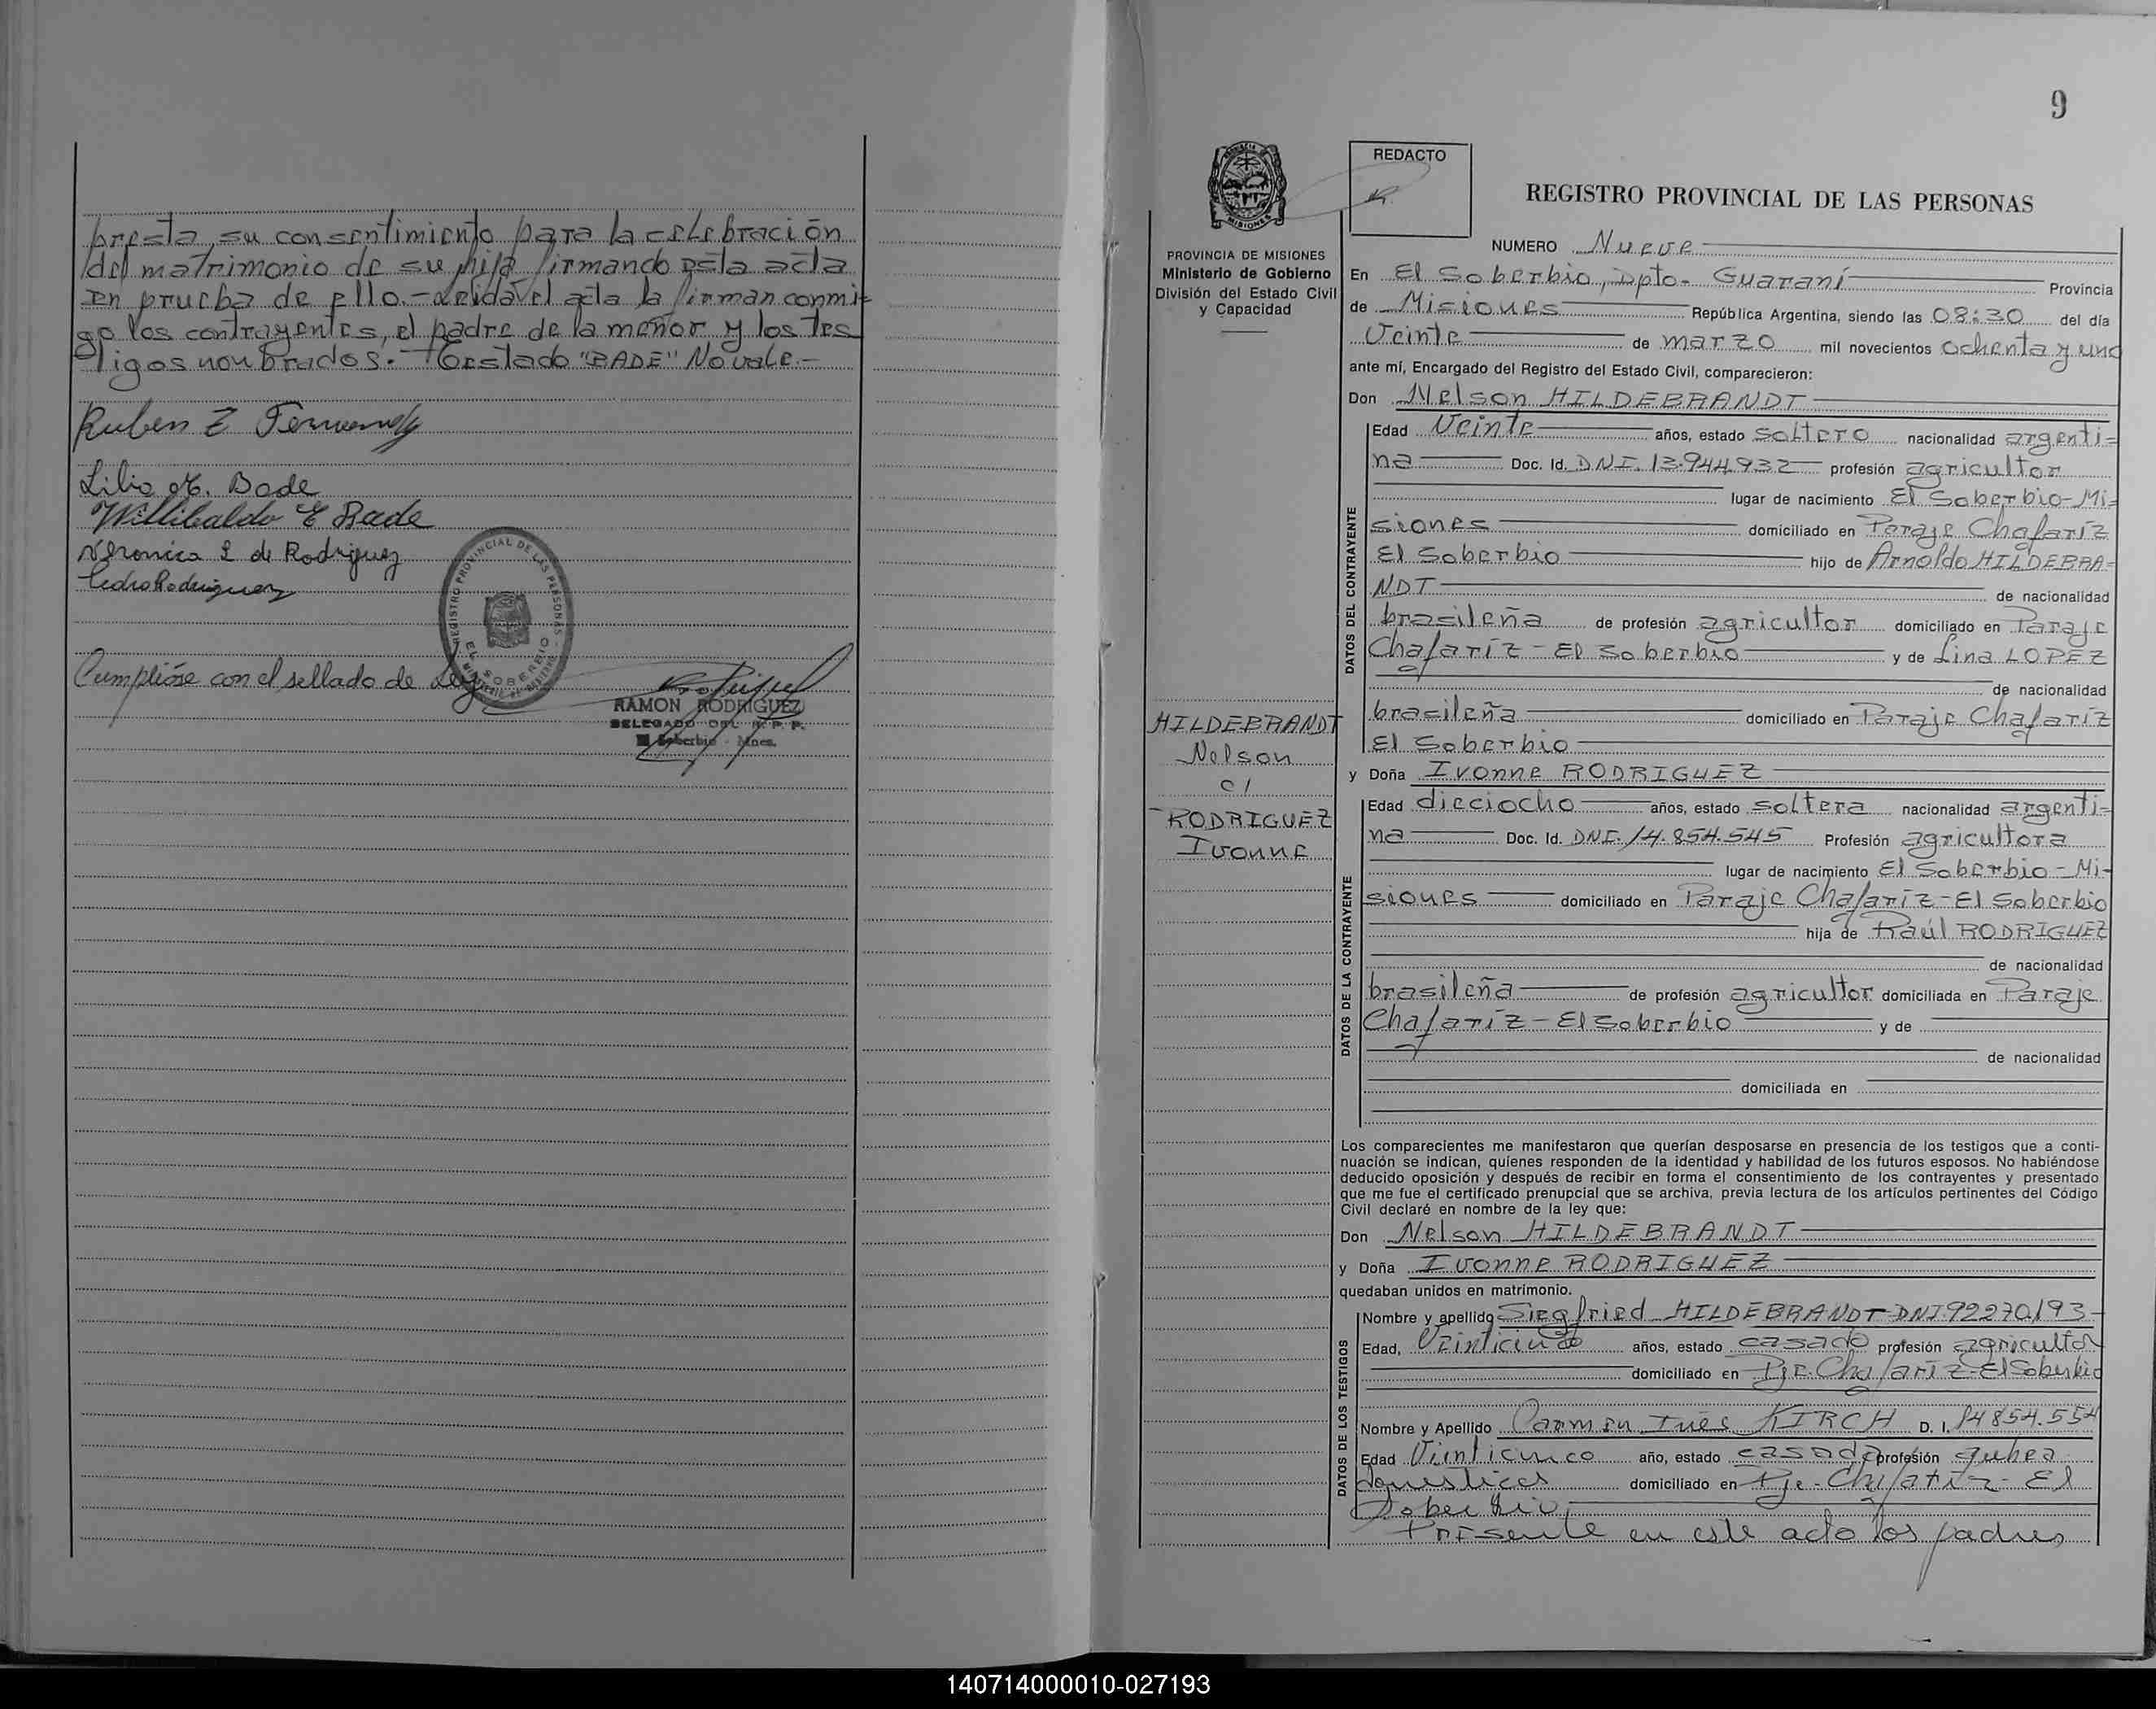 presta su consentimiento para la celebración
del matrimonio de su hija firmando esta acta
en prueba de ello.- Leida el acta la firman conmi-
go los contrayentes, el padre de la menor y los tes
tigos nombrados.- Testado "BADE" No vale.-
Ruben E
Lilia M. Bade
Willibaldo E Bade
Veronica L de Rodriguez
Pedro Rodriguez
REGISTRO PROVINCIAL DE LAS PERSONAS
EL SOBERBIO
Cumplióse con el sellado de Ley
RAMON RODRIGUEZ
DELEGADO DEL R. P. P.
El Soberbio - Mnes.
9
REDACTO
REGISTRO PROVINCIAL DE LAS PERSONAS
PROVINCIA DE MISIONES
Ministerio de Gobierno
División del Estado Civil
y Capacidad
NUMERO Nueve
En El Soberbio, Dpto- Guaraní Provincia
de Misiones República Argentina, siendo las 08:30 del día
Veinte de marzo mil novecientos ochenta y uno
ante mí, Encargado del Registro del Estado Civil, comparecieron:
Don Nelson HILDEBRANDT
DATOS DEL CONTRAYENTE
Edad Veinte años, estado soltero nacionalidad argenti=
na Doc. Id. DNI. 13.944.932 profesión agricultor
lugar de nacimiento El Soberbio-Mi-
siones domiciliado en Paraje Chafaríz
El Soberbio hijo de Arnoldo HILDEBRA=
NDT de nacionalidad
brasileña de profesión agricultor domiciliado en Paraje
Chafaríz - El Soberbio y de Lina LOPEZ
de nacionalidad
brasileña domiciliado en Paraje Chafaríz
El Soberbio
HILDEBRANDT
Nelson
c/
RODRIGUEZ
Ivonne
y Doña Ivonne RODRIGUEZ
DATOS DE LA CONTRAYENTE
Edad dieciocho años, estado soltera nacionalidad argenti-
na Doc. Id. DNI. 14.854.545 Profesión agricultora
lugar de nacimiento El Soberbio - Mi-
siones domiciliado en Paraje Chafaríz - El Soberbio
hija de Raúl RODRIGUEZ
de nacionalidad
brasileña de profesión agricultor domiciliada en Paraje
Chafaríz - El Soberbio y de
de nacionalidad
domiciliada en
Los comparecientes me manifestaron que querían desposarse en presencia de los testigos que a conti-
nuación se indican, quienes responden de la identidad y habilidad de los futuros esposos. No habiéndose
deducido oposición y después de recibir en forma el consentimiento de los contrayentes y presentado
que me fue el certificado prenupcial que se archiva, previa lectura de los artículos pertinentes del Código
Civil declaré en nombre de la ley que:
Don Nelson HILDEBRANDT
y Doña Ivonne RODRIGUEZ
quedaban unidos en matrimonio.
DATOS DE LOS TESTIGOS
Nombre y apellido Siegfried HILDEBRANDT DNI 92270193
Edad, Veinticinco años, estado casado profesión agricultor
domiciliado en Pje. Chafaríz - El Soberbio
Nombre y Apellido Carmen Inés KIRCH D. I. 14854.554
Edad Veinticinco año, estado casada profesión quehea
domesticos domiciliado en Pje- Chafaríz - El
Soberbio
Presente en este acto los padres
140714000010-027193